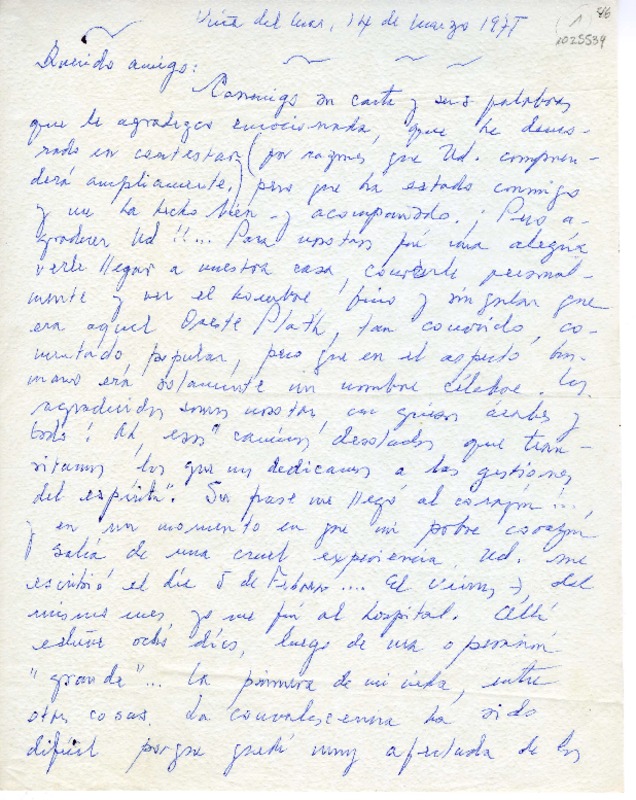 Viña del Mar, 14 de marzo 197
1
46
1025539
Querido amigo:
Conmigo su carta y sus palabras
que le agradezco emocionada, que he demo-
rado en contestar (por razones que Ud. compren-
derá ampliamente,) pero que ha estado conmigo
y me ha hecho bien y acompañado. ¡Pero a-
gradecer Ud!!... Para nosotras fué una alegría
verle llegar a nuestra casa, conocerle personal-
mente y ver el hombre fino y singular que
era aquel Oreste Plath, tan conocido, co-
mentado, popular, pero que en el aspecto hu-
mano era solamente un nombre célebre. Las
agradecidas somos nosotras con
todo! Ah, esos "caminos desolados que tran-
sitamos los que nos dedicamos a las gestiones
del espíritu". Su frase me llegó al corazón!!,
y en un momento en que mi pobre corazón
salía de una cruel experiencia. Ud. me
escribió el día 5 de Febrero.... El Viernes 7 del
mismo mes yo me fuí al hospital. Allí
estuve ocho días, luego de una operación
"grande"... la primera de mi vida, entre
otras cosas. La convalescencia ha sido
difícil porque quedé muy afectada de los